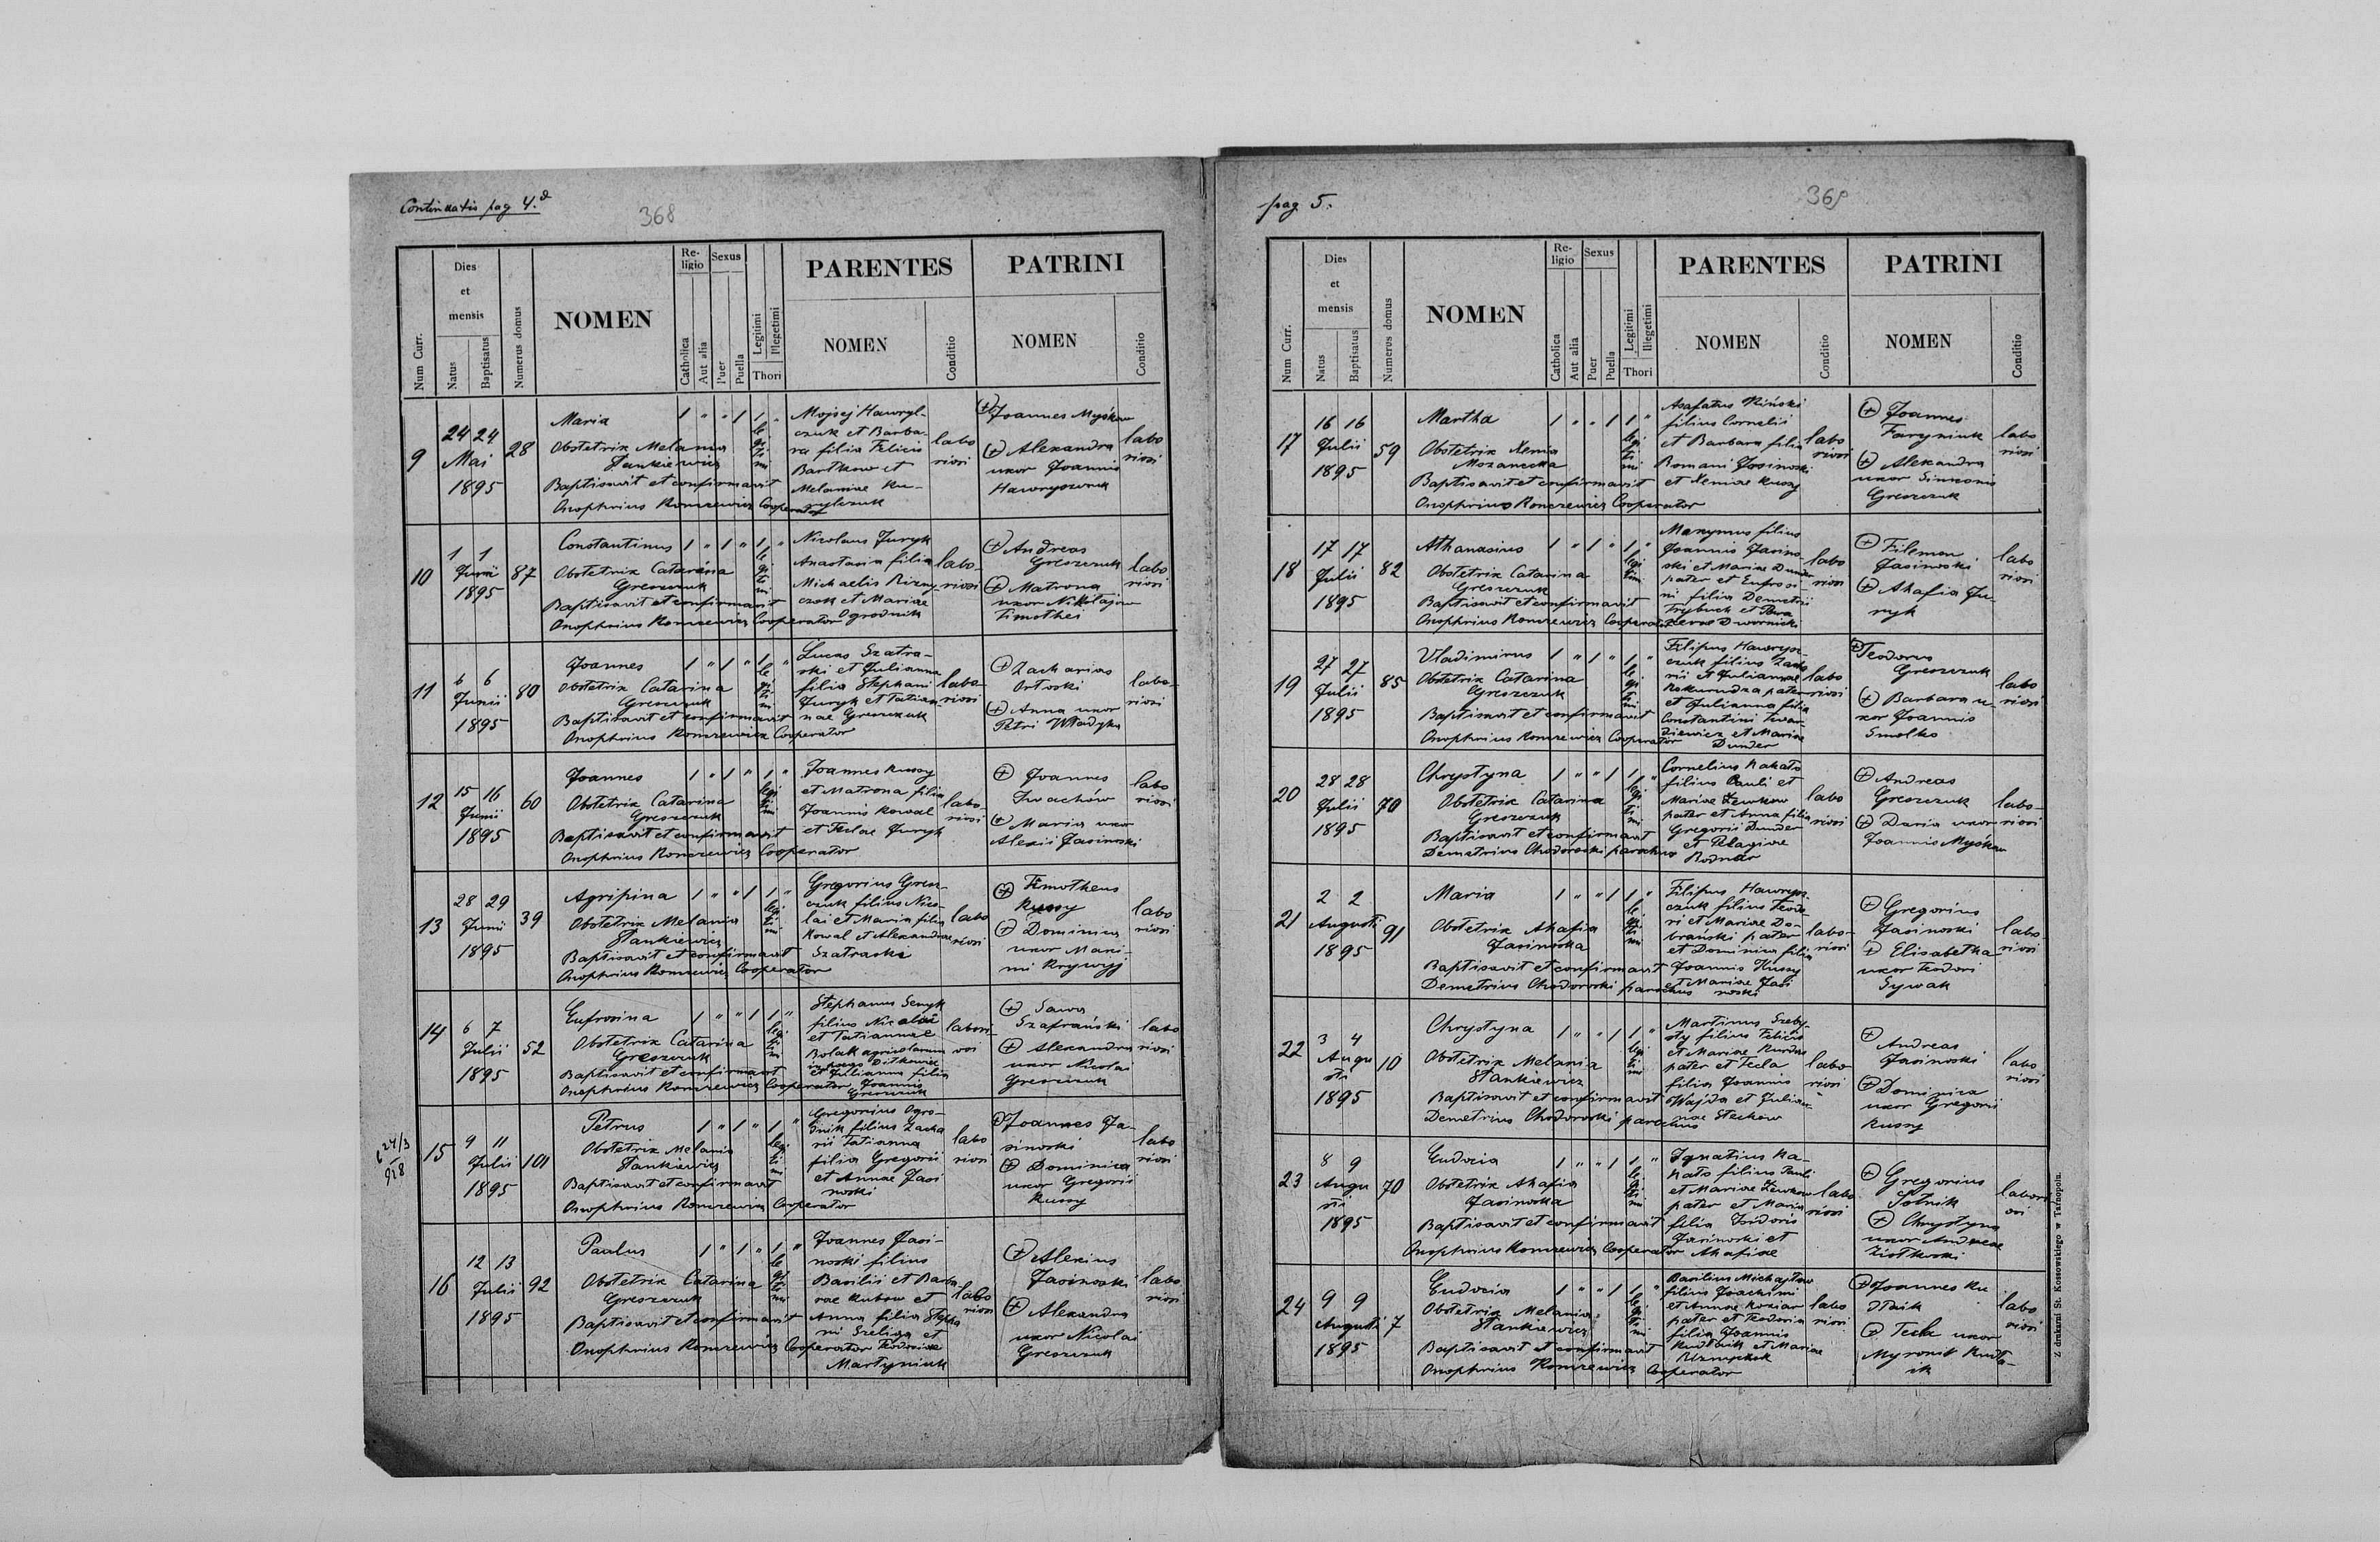 Continuatio pag 4.
368
Num Curr.
Dies et mensis
Natus
Baptisatus
Numerus domus
NOMEN
Religio
Catholica
Aut alia
Sexus
Puer
Puella
Legitimi
Illegetimi
Thori
PARENTES
NOMEN
Conditio
PATRINI
NOMEN
Conditio
9
24 24
Mai
1895
28
Maria
Obstetrix Melania
Stankiewicz
Baptisavit et confirmavit
Onophrius Konczewicz Cooperator
1 " " 1 1 "
legitimi
Mojsej Hawryl-
czuk et Barba-
ra filia Felicis
Bartkow et
Melaniae
laboriosi
Joannes Myśkow
Alexandra
uxor Joannis
Hawryszczuk
laboriosi
10
1 1
Junii
1895
87
Constantinus
Obstetrix Catarina
Greszczuk
Baptisavit et confirmavit
Onophrius Konczewicz Cooperator
1 " 1 " 1 "
legitimi
Nicolaus Juryk
Anastasia filia
Michaelis Rizny-
czok et Mariae
Ogrodnik
laboriosi
Andreas
Greszczuk
Matrona
uxor Nikołajow
Timothei
laboriosi
11
6 6
Junii
1895
80
Joannes
Obstetrix Catarina
Greszczuk
Baptisavit et confirmavit
Onophrius Konczewicz Cooperator
1 " 1 " 1 "
legitimi
Lucas Szatra-
ski et Julianna
filia Stephani
Juryk et Tatian-
nae Greszczuk
laboriosi
Zacharias
Orłoski
Anna uxor
Petri Władyka
laboriosi
12
15 16
Junii
1895
60
Joannes
Obstetrix Catarina
Greszczuk
Baptisavit et confirmavit
Onophrius Konczewicz Cooperator
1 " 1 " 1 "
legitimi
Joannes Kussy
et Matrona filia
Joannis Kowal
et Teclae Juryk
laboriosi
Joannes
Iwachów
Maria uxor
Alexii Jasinoski
laboriosi
13
28 29
Junii
1895
39
Agripina
Obstetrix Melania
Stankiewicz
Baptisavit et confirmavit
Onophrius Konczewicz Cooperator
1 " " 1 1 "
legitimi
Gregorius Gresz-
czuk filius Nico-
lai et Maria filia
Kowal et Alexandrae
Szatraska
laboriosi
Timotheus
Kussy
Dominica
uxor Maxi-
mi Krywyj
laboriosi
14
6 7
Julii
1895
52
Eufrosina
Obstetrix Catarina
Greszczuk
Baptisavit et confirmavit
Onophrius Konczewicz Cooperator
1 " " 1 1 "
legitimi
Stephanus Senyk
filius Nicolai
et Tatiannae
Bolak agricolarum
Ditkowce
et Julianna filia
Joannis
Greszczuk
laboriosi
Sawa
Szafrański
Alexandra
uxor Nicolai
Greszczuk
laboriosi
24/3
15
9 11
Julii
1895
101
Petrus
Obstetrix Melania
Stankiewicz
Baptisavit et confirmavit
Onophrius Konczewicz Cooperator
1 " 1 " 1 "
legitimi
Gregorius Ogro-
dnik filius Zacha
rii Tatianna
filia Gregorii
et Annae Jasi
noski
laboriosi
Joannes Ja-
sinoski
Dominica
uxor Gregorii
Kussy
laboriosi
16
12 13
Julii
1895
92
Paulus
Obstetrix Catarina
Greszczuk
Baptisavit et confirmavit
Onophrius Konczewicz Cooperator
1 " 1 " 1 "
legitimi
Joannes Jasi-
noski filius
Basilii et Barba-
rae Kubow et
Anna filia Stepha
ni Szeliga et
Teodosiae
Martyniuk
laboriosi
Alexius
Jasinoski
Alexandra
uxor Nicolai
Greszczuk
laboriosi
pag 5.
369
Num Curr.
Dies et mensis
Natus
Baptisatus
Numerus domus
NOMEN
Religio
Catholica
Aut alia
Sexus
Puer
Puella
Legitimi
Illegetimi
Thori
PARENTES
NOMEN
Conditio
PATRINI
NOMEN
Conditio
17
16 16
Julii
1895
59
Martha
Obstetrix Xenia
Mozanecka
Baptisavit et confirmavit
Onophrius Konczewicz Cooperator
1 " " 1 1 "
legitimi
Asafatus Kiński
filius Cornelii
et Barbara filia
Romani Jasinoski
et Xeniae Kussy
laboriosi
Joannes
Faryniuk
Alexandra
uxor Simeonis
Greszczuk
laboriosi
18
17 17
Julii
1895
82
Athanasius
Obstetrix Catarina
Greszczuk
Baptisavit et confirmavit
Onophrius Konczewicz Cooperator
1 " 1 " 1 "
legitimi
Maxymus filius
Joannis Jasino-
ski et Mariae Dunder
pater et Eufrosi
ni filia Demetrii
Trybuch et Para
Dwornicki
laboriosi
Filemon
Jasinoski
Ahafia Ju-
ryk
laboriosi
19
27 27
Julii
1895
85
Vladimirus
Obstetrix Catarina
Greszczuk
Baptisavit et confirmavit
Onophrius Konczewicz Cooperator
1 " 1 " 1 "
legitimi
Filipus Hawrysz-
czuk filius Zacha
rii et Juliannae
Kukurudza pater
et Julianna filia
Constantini Twar-
dziewicz et Mariae
Dunder
laboriosi
Teodorus
Greszczuk
Barbara u-
xor Joannis
Smolko
laboriosi
20
28 28
Julii
1895
70
Chrystyna
Obstetrix Catarina
Greszczuk
Baptisavit et confirmavit
Demetrius Chodoroski parochus
1 " " 1 1 "
legitimi
Cornelius Kakato
filius Pauli et
Mariae Lewkow
pater et Anna filia
Gregorii Dunder
et Pelagiae
Bodnar
laboriosi
Andreas
Greszczuk
Daria uxor
Joannis Myśkow
laboriosi
21
2 2
Augusti
1895
91
Maria
Obstetrix Ahafia
Jasinoska
Baptisavit et confirmavit
Demetrius Chodoroski parochus
1 " " 1 1 "
legitimi
Filipus Hawrysz
czuk filius Teodo-
ri et Mariae Do-
brański pater
et Dominica filia
Joannis Kussy
et Mariae Jasi
noski
laboriosi
Gregorius
Jasinoski
Elisabetha
uxor Teodori
Sywak
laboriosi
22
3 4
Augusti
1895
10
Chrystyna
Obstetrix Melania
Stankiewicz
Baptisavit et confirmavit
Demetrius Chodoroski parochus
1 " " 1 1 "
legitimi
Martinus Szeby-
sty filius Felicis
et Mariae Kurdas
pater et Tecla
filia Joannis
Wajda et Julian-
nae Steckow
laboriosi
Andreas
Jasinoski
Dominica
uxor Gregorii
Kussy
laboriosi
23
8 9
Augusti
1895
70
Eudocia
Obstetrix Ahafia
Jasinoska
Baptisavit et confirmavit
Onophrius Konczewicz Cooperator
1 " " 1 1 "
legitimi
Ignatius Ka-
kato filius Pauli
et Mariae Lewkow
pater et Maria
filia Isidoris
Jasinoski et
Ahafiae
laboriosi
Gregorius
Sotnik
Chrystyna
uxor Andreae
Ziołkoski
laboriosi
24
9 9
Augusti
1895
7
Eudocia
Obstetrix Melania
Stankiewicz
Baptisavit et confirmavit
Onophrius Konczewicz Cooperator
1 " " 1 1 "
legitimi
Basilius Michajłow
filius Joachimi
et Annae Koziar
pater et Teodosia
filia Joannis
Kudłaik et Mariae
Riznyczok
laboriosi
Joannes Ku
dłaik
Tecla uxor
Myronis Kudła-
ik
laboriosi
Z drukarni St. Kossowskiego w Tarnopolu.